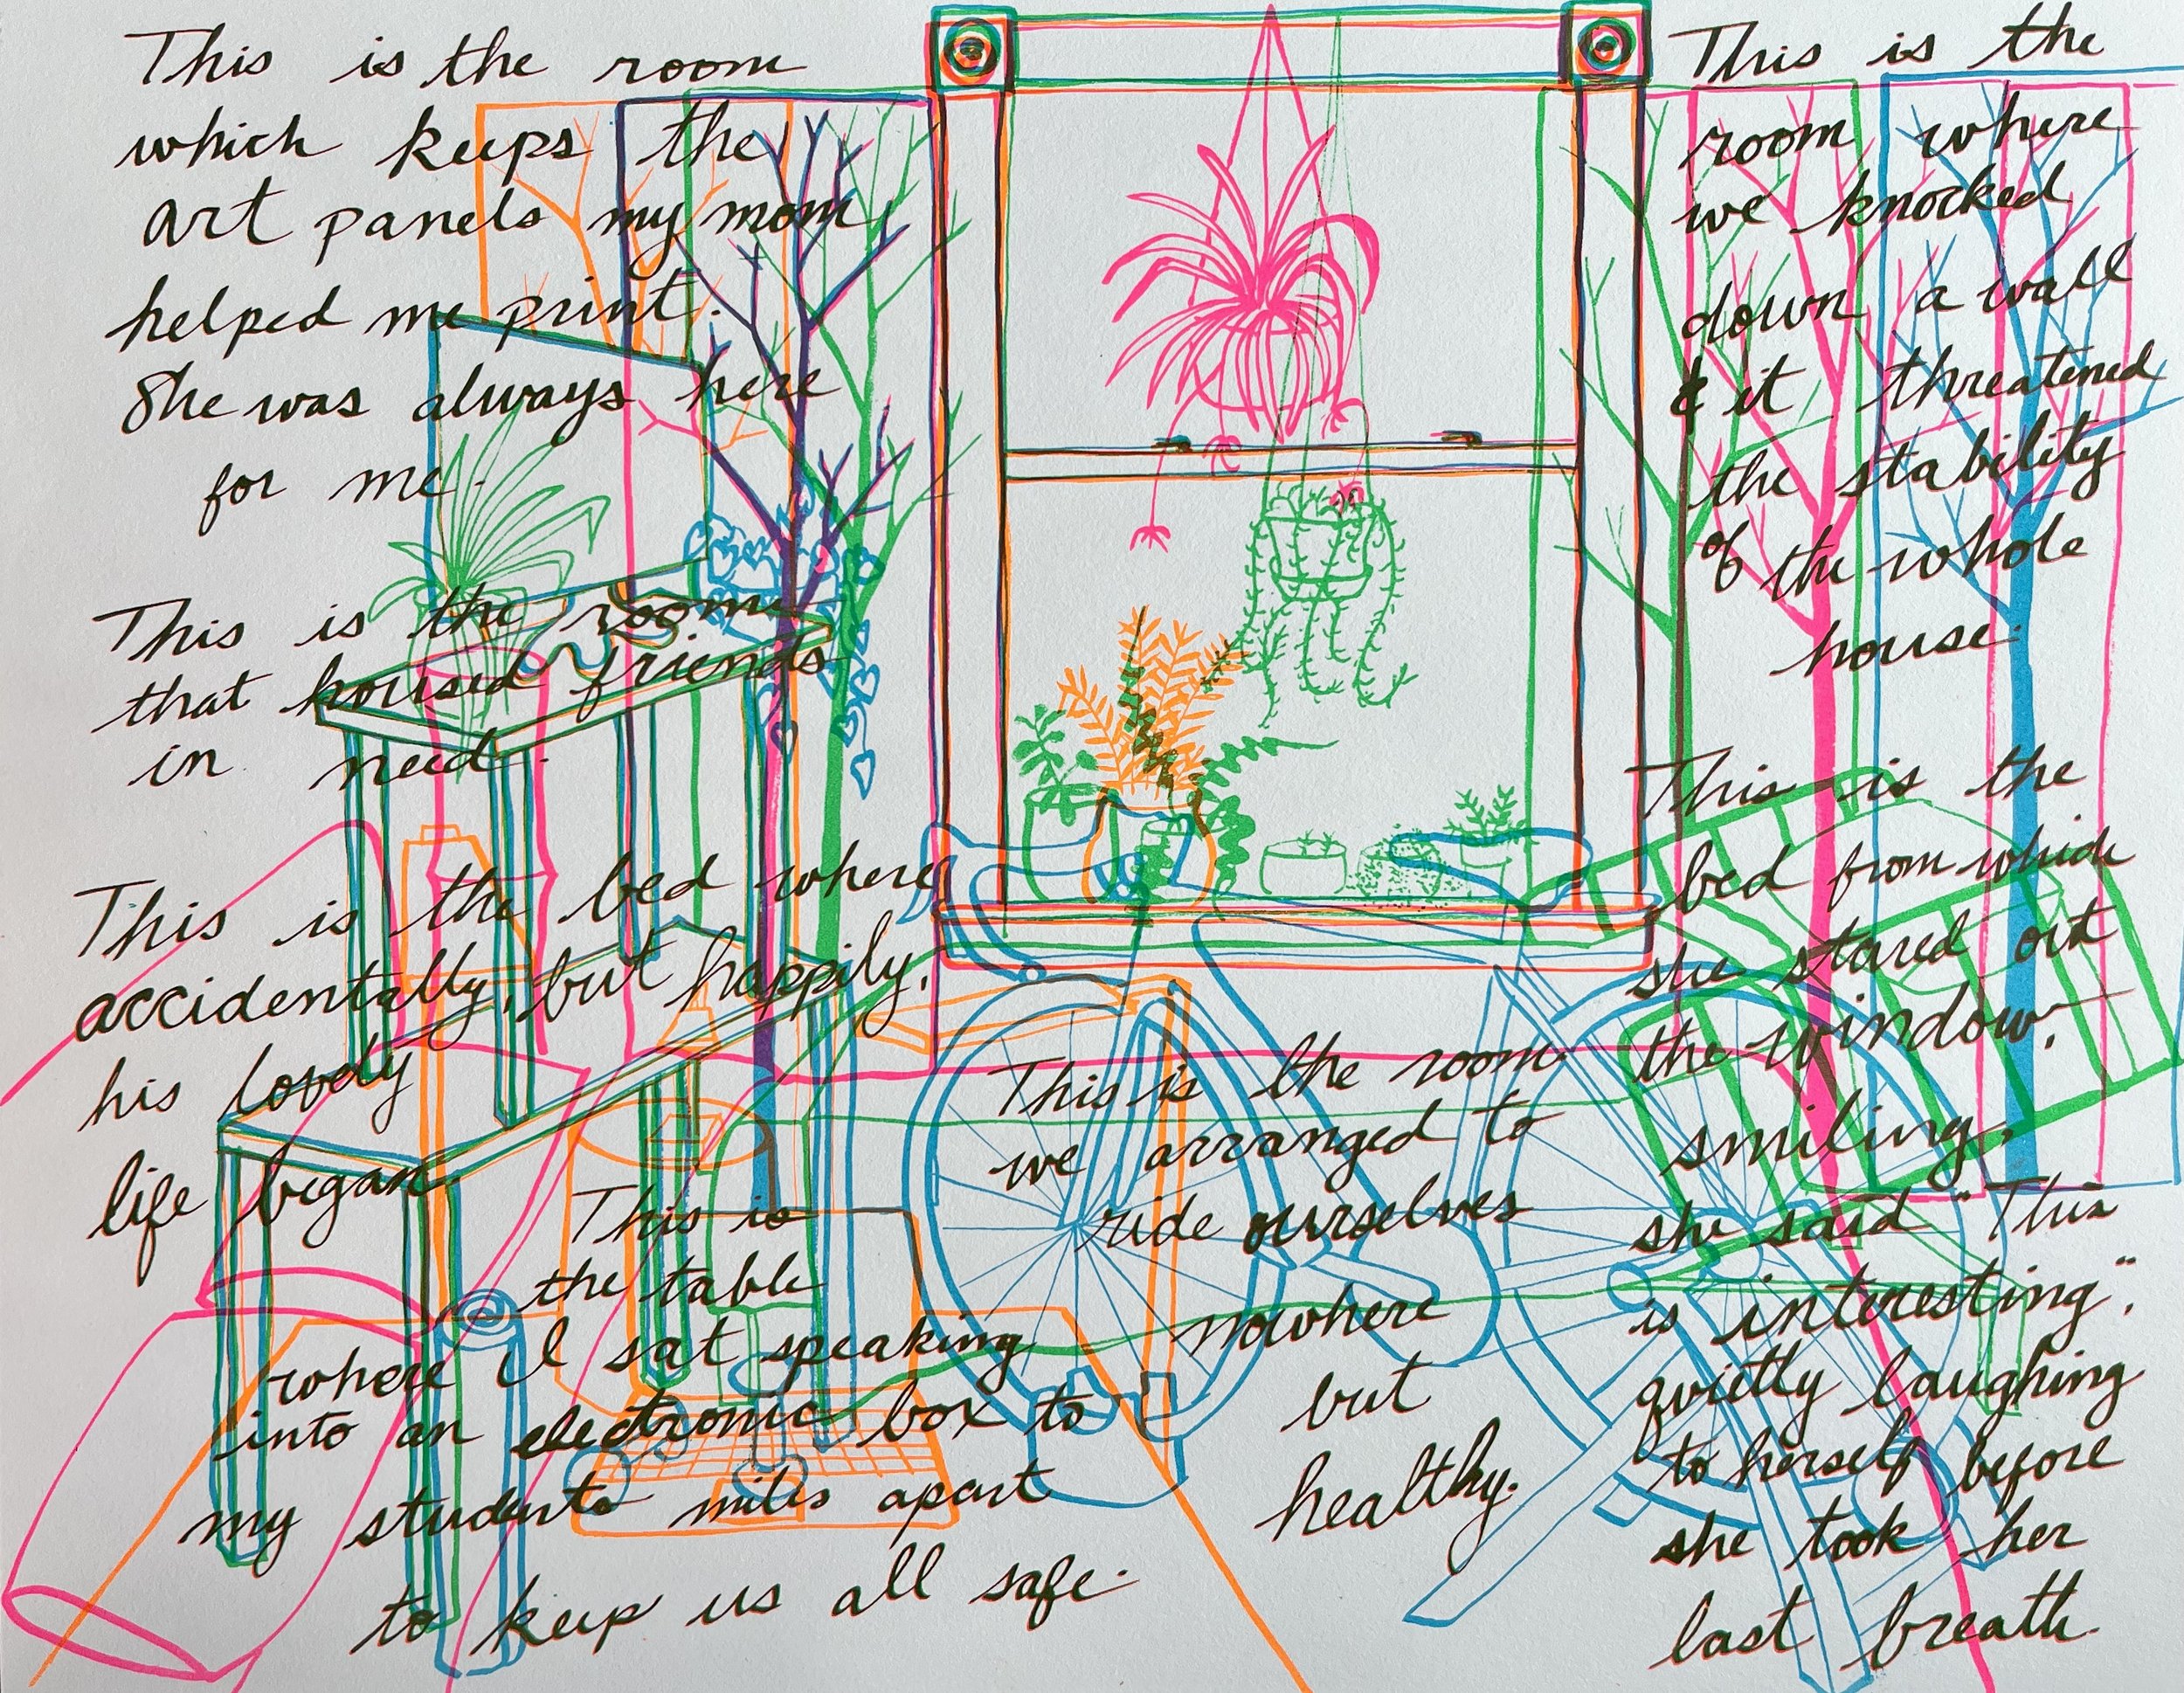 This is the room
which keeps the
art panels my mom
helped me print.
She was always here
for me.
This is the room
that housed friends
in need.
This is the bed where
accidentally, but happily,
his lovely
life began.
This is
the table
where I sat speaking
into an electronic box to
my students miles apart
to keep us all safe.
This is the room
we arranged to
ride ourselves
nowhere
but
healthy.
This is the
room where
we knocked
down a wall
& it threatened
the stability
of the whole
house.
This is the
bed from which
she stared out
the window.
smiling,
she said "This
is interesting".
quietly laughing
to herself before
she took her
last breath.